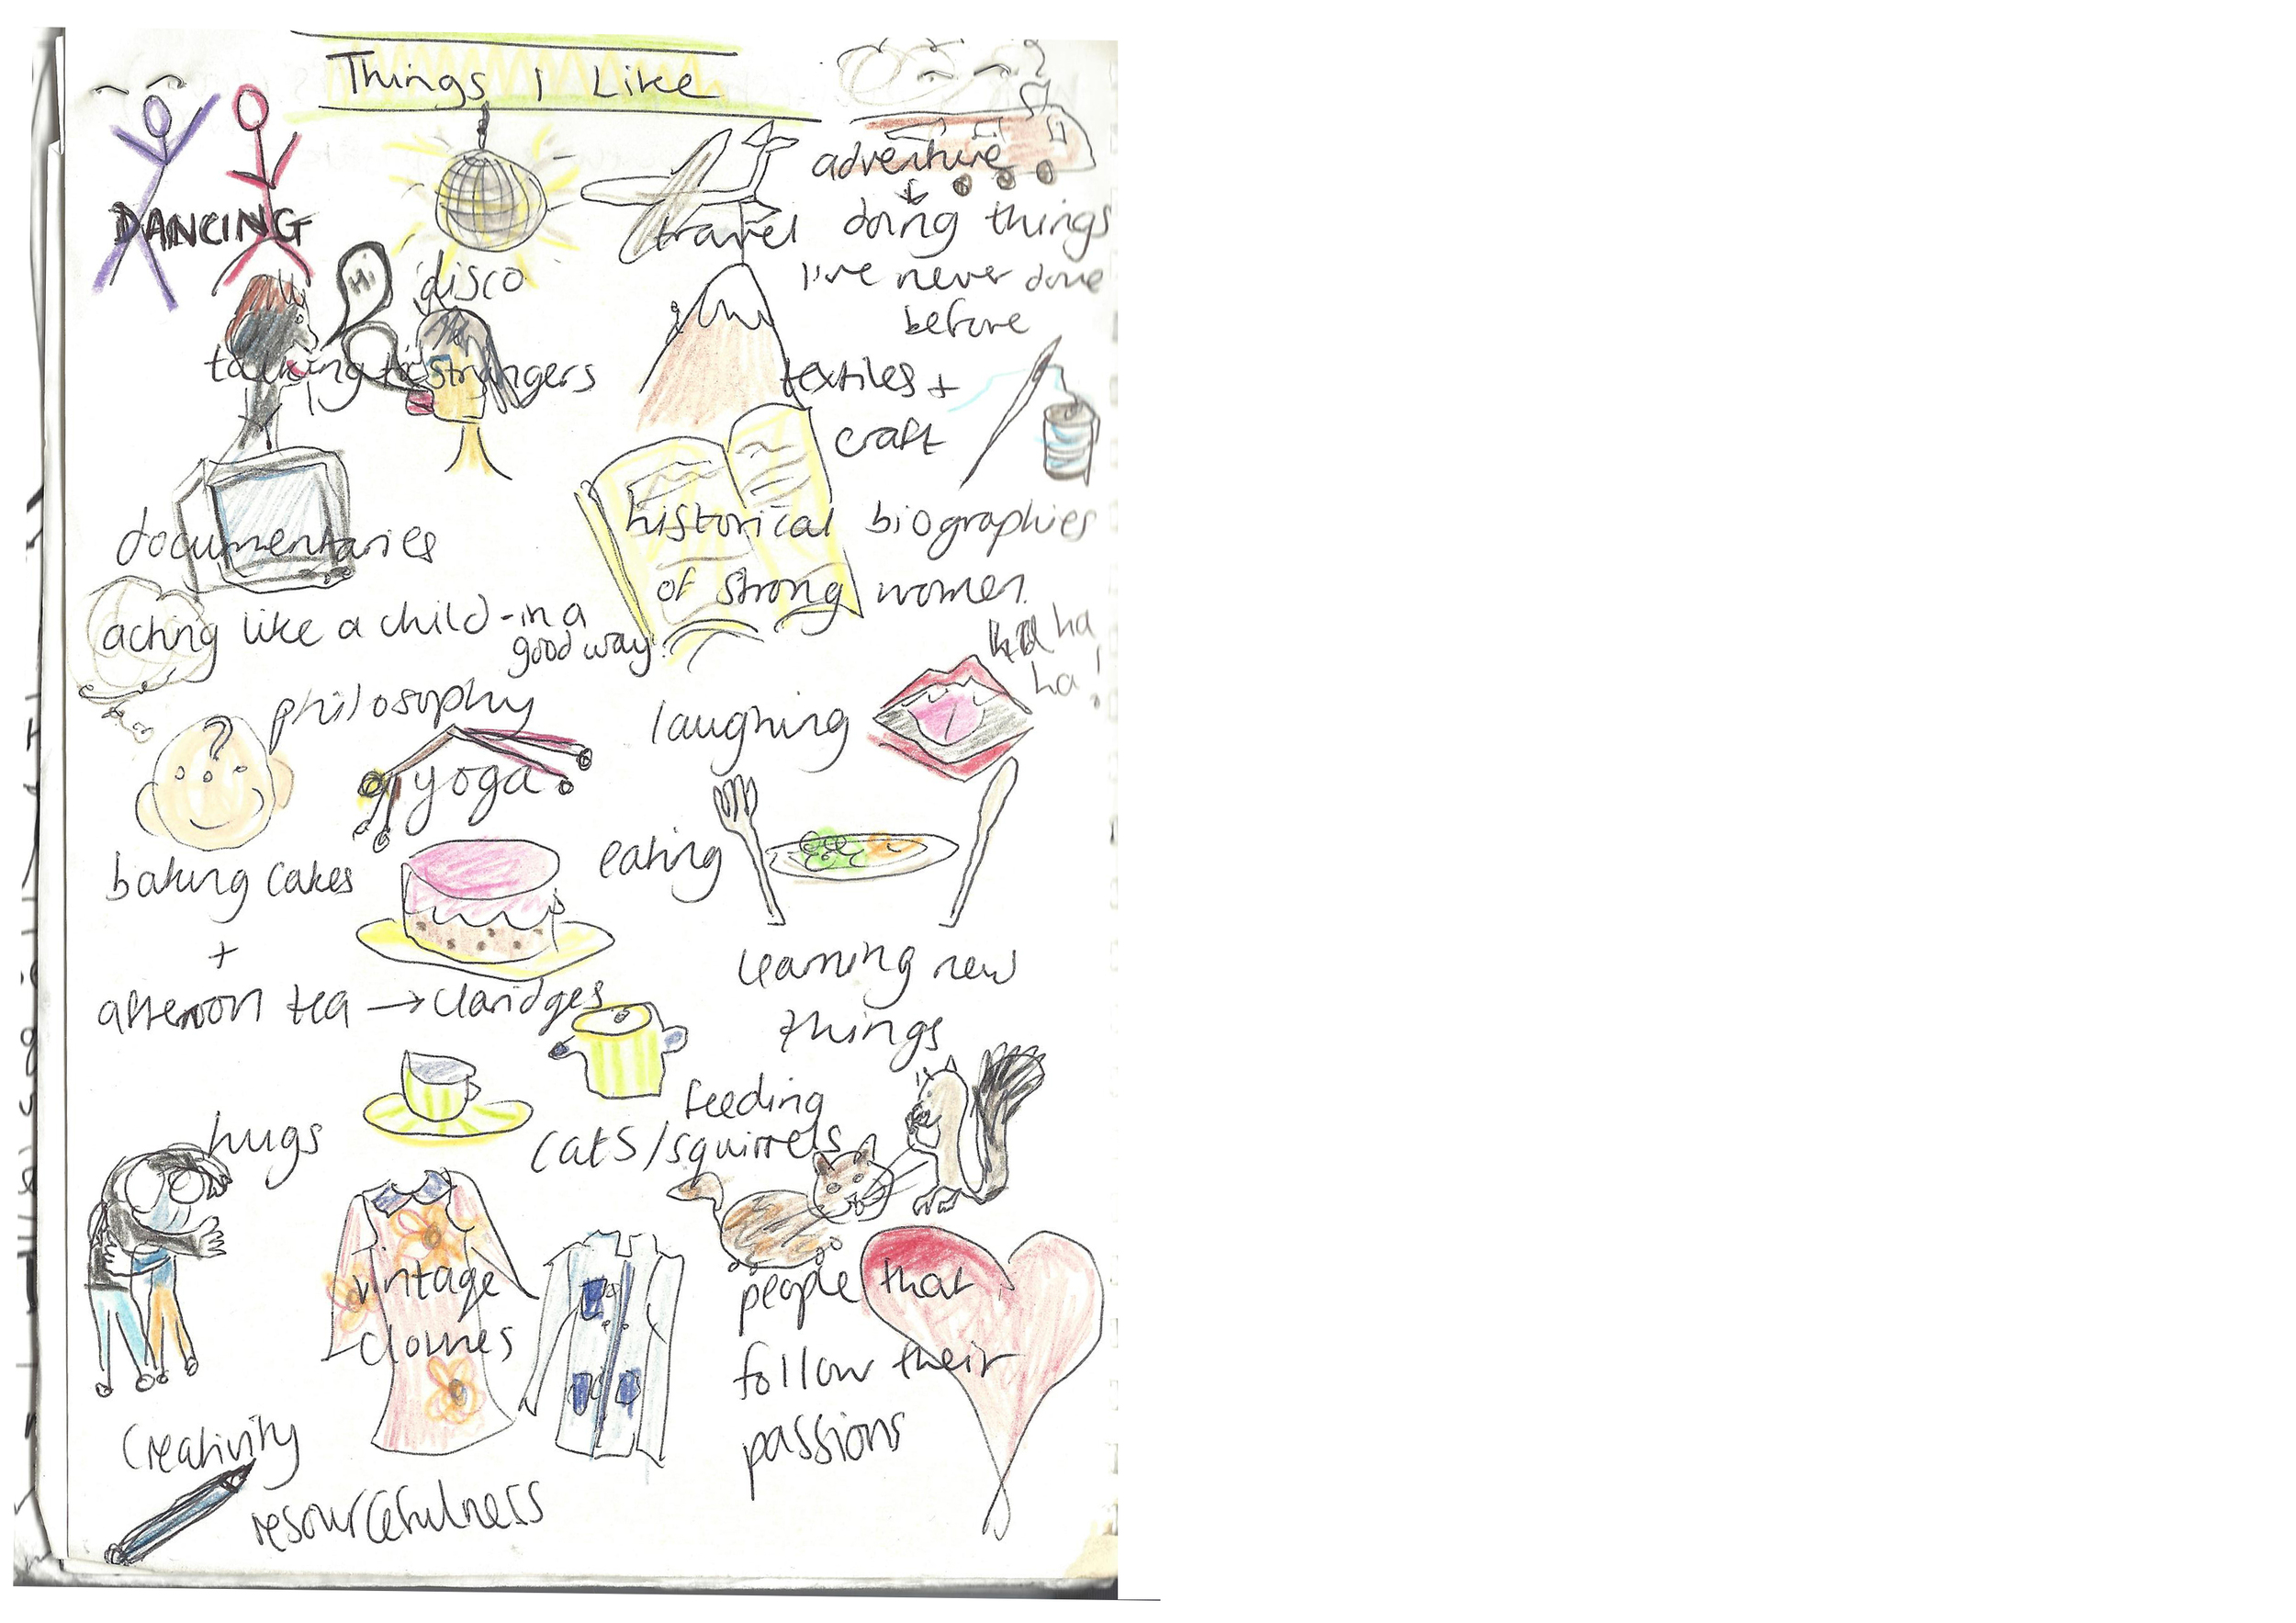 Things I Like
DANCING
disco
travel
adventure
doing things
I've never done
before
Hi
talking to strangers
textiles +
craft
documentaries
historical biographies
of strong women.
acting like a child - in a
good way!
philosophy
?
yoga
laughing
ha ha
ha!
baking cakes
+
afternoon tea → claridges
eating
learning new
things
feeding
cats/squirrels
hugs
vintage
clothes
people that
follow their
passions
creativity
resourcefulness